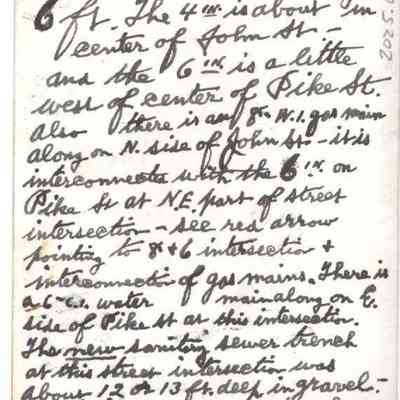 6 ft. The 4 in is about in
center of John St. -
and the 6 in is a little
west of center of Pike St.
Also there is an 8 in W.I. gas main
along on N. side of John St. - it is
interconnected with the 6 in. on
Pike St at N.E. part of street
intersection - see red arrow
pointing to 8 & 6 intersection &
interconnection of gas mains. There is
a 6" c.i. water main along on E.
side of Pike St at this intersection.
The new sanitary sewer trench
at this street intersection was
about 12 or 13 ft. deep in gravel. -
2025.